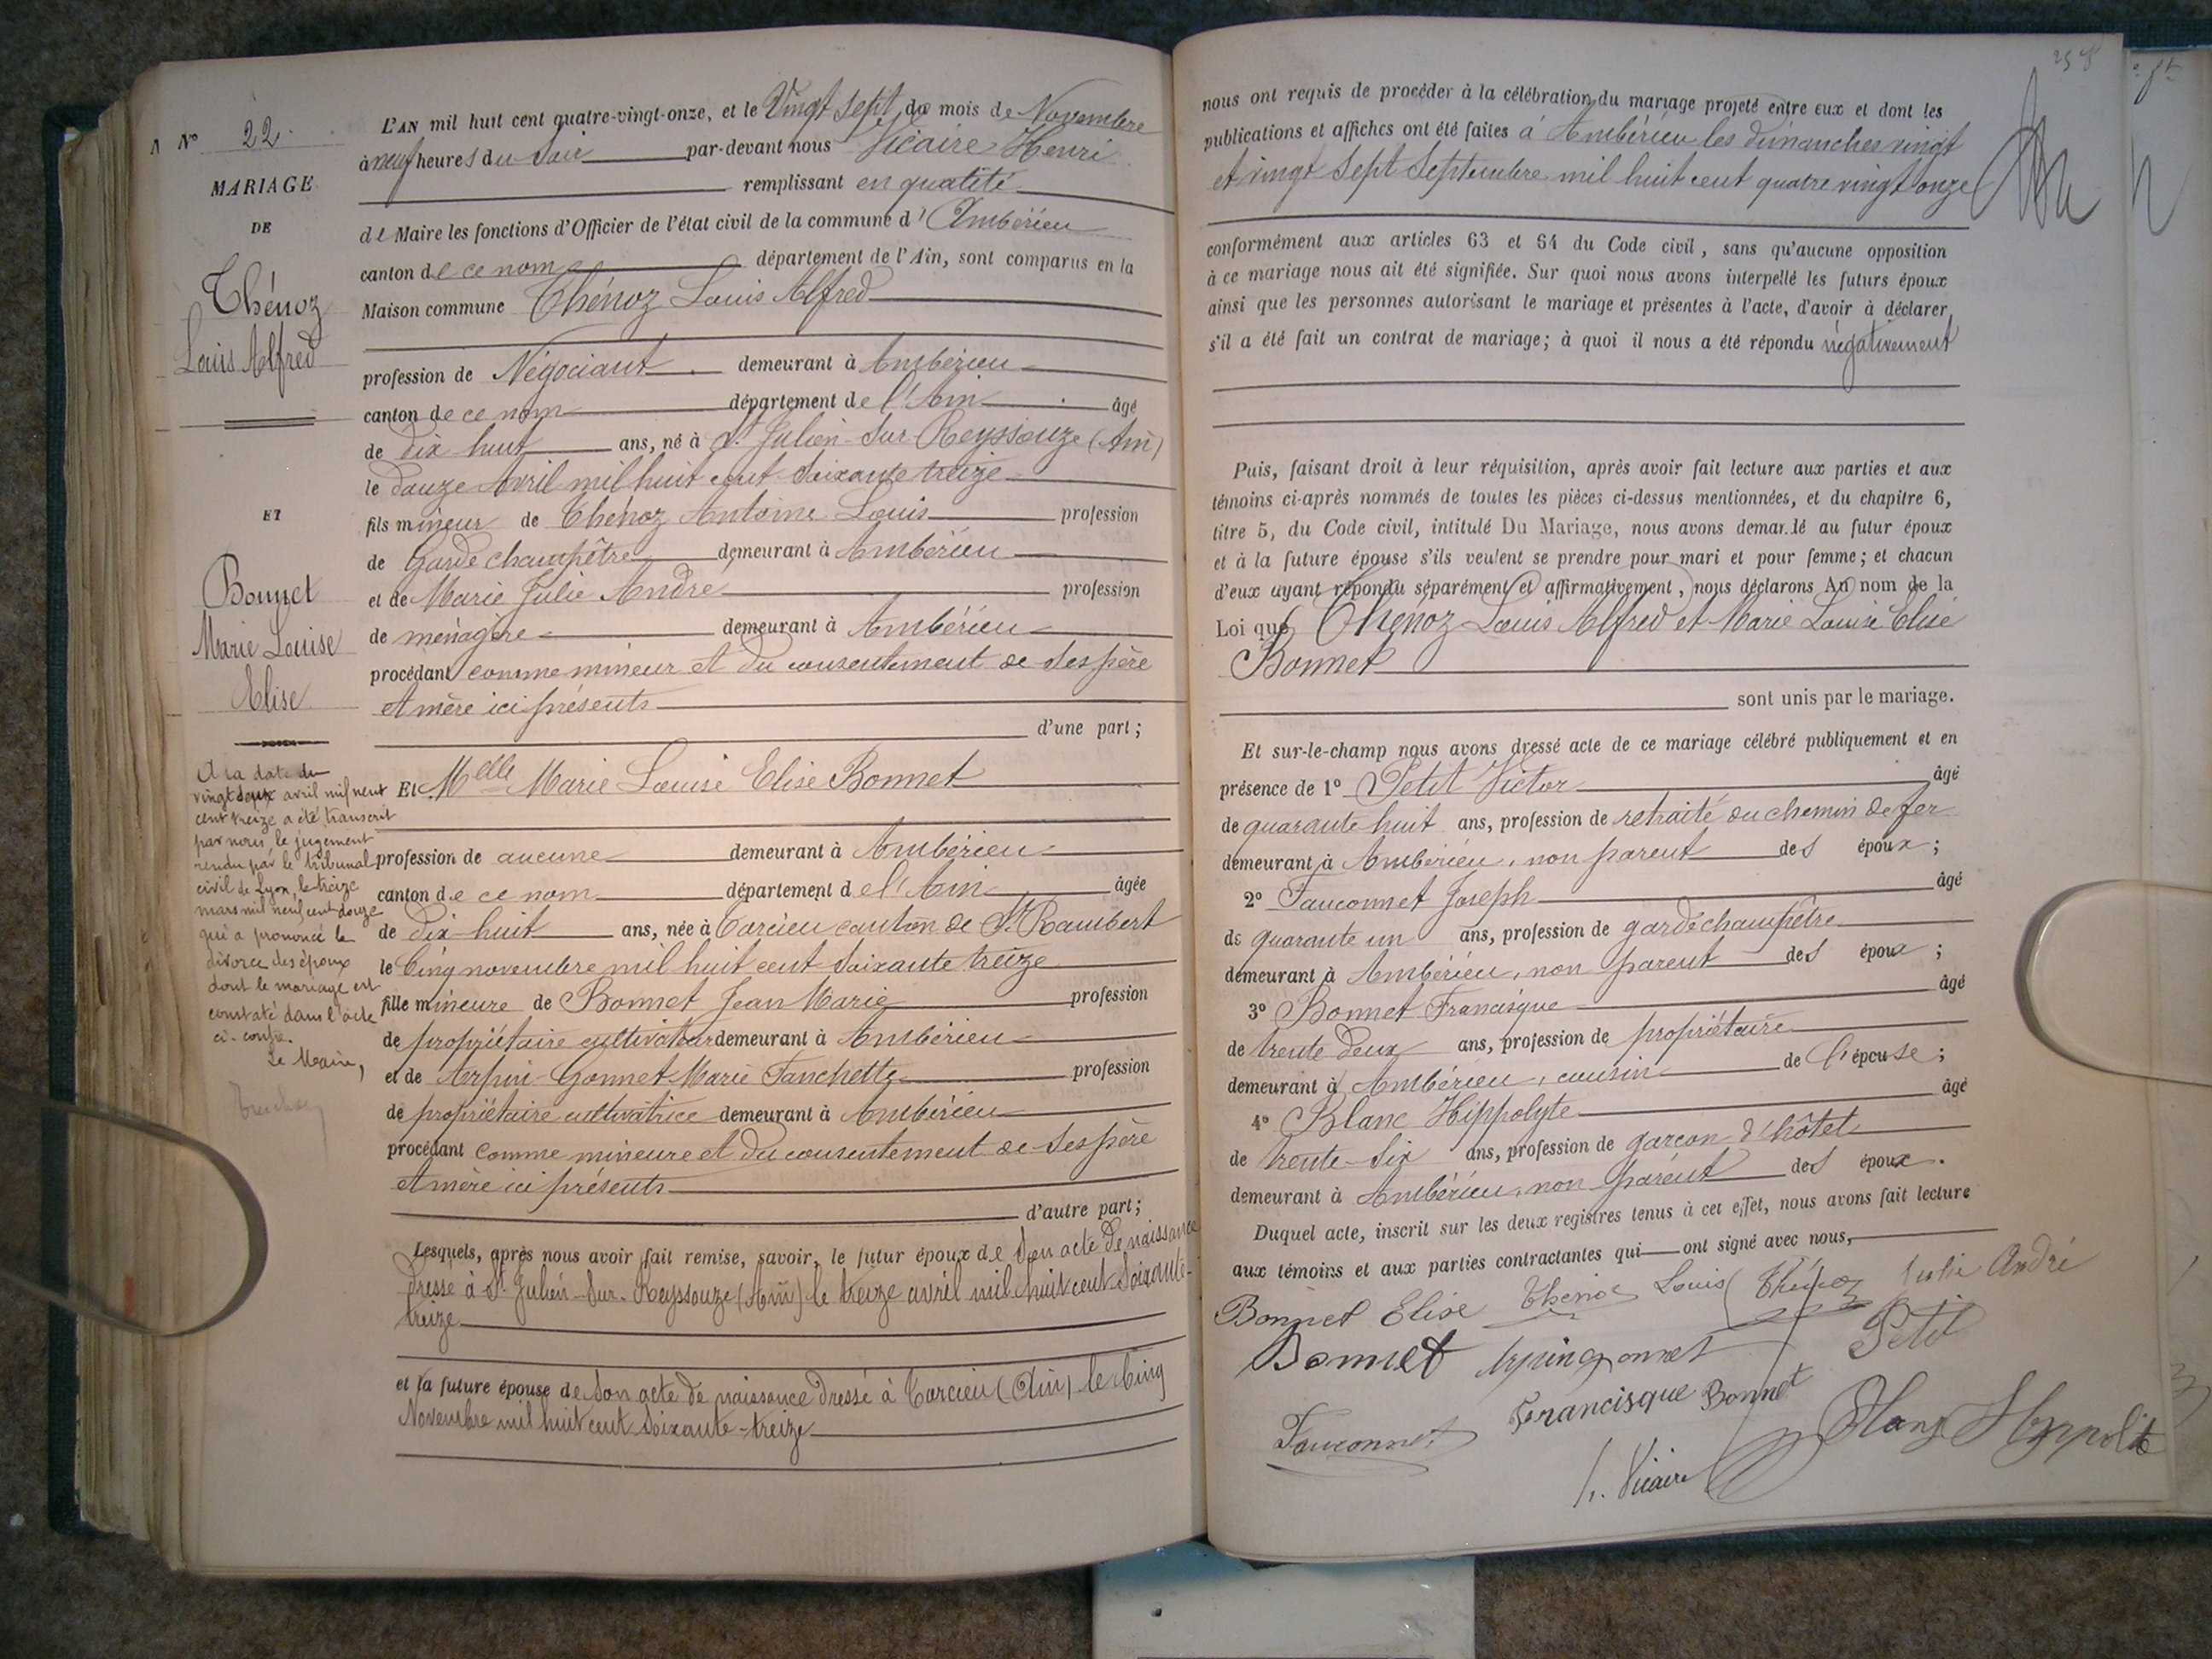 N° 22
MARIAGE
DE
Thénoz
Louis Alfred
ET
Bonnet
Marie Louise
Elise
A la date du
vingt deux avril mil neuf
cent treize a été transcrit
par nous le jugement
rendu par le tribunal
civil de Lyon, le treize
mars mil neuf cent douze
qui a prononcé le
divorce des époux
dont le mariage est
constaté dans l'acte
ci-contre.
Le Maire,
L'AN mil huit cent quatre-vingt-onze, et le Vingt Sept du mois de Novembre
à neuf heures du Soir par-devant nous Vicaire Henri
remplissant en qualité
de Maire les fonctions d'Officier de l'état civil de la commune d'Ambérieu
canton de ce nom département de l'Ain, sont comparus en la
Maison commune Thénoz Louis Alfred
profession de Négociant demeurant à Ambérieu
canton de ce nom département de l'Ain âgé
de dix huit ans, né à St Julien-Sur-Reyssouze (Ain)
le douze Avril mil huit cent soixante treize
fils mineur de Thenoz Antoine Louis profession
de Garde champêtre demeurant à Ambérieu
et de Marie Julie Andre profession
de ménagère demeurant à Ambérieu
procédant comme mineur et du consentement de Ses père
et mère ici présents
d'une part;
Et Melle Marie Louise Elise Bonnet
profession de aucune demeurant à Ambérieu
canton de ce nom département de l'Ain âgée
de dix-huit ans, née à Torcieu canton de St Rambert
le Cinq novembre mil huit cent soixante treize
fille mineure de Bonnet Jean Marie profession
de propriétaire cultivateur demeurant à Ambérieu
et de Arpin-Gonnet Marie Fanchette profession
de propriétaire cultivatrice demeurant à Ambérieu
procédant comme mineure et du consentement de Ses père
et mère ici présents
d'autre part;
Lesquels, après nous avoir fait remise, savoir, le futur époux de Son acte de naissance
dressé à St Julien-Sur-Reyssouze (Ain) le treize avril mil huit cent soixante-
treize
et la future épouse de Son acte de naissance dressé à Torcieu (Ain) le Cinq
Novembre mil huit cent soixante-treize
nous ont requis de procéder à la célébration du mariage projeté entre eux et dont les
publications et affiches ont été faites à Ambérieu les dimanches vingt
et vingt Sept Septembre mil huit cent quatre vingt onze
conformément aux articles 63 et 64 du Code civil, sans qu'aucune opposition
à ce mariage nous ait été signifiée. Sur quoi nous avons interpellé les futurs époux
ainsi que les personnes autorisant le mariage et présentes à l'acte, d'avoir à déclarer
s'il a été fait un contrat de mariage; à quoi il nous a été répondu négativement
Puis, faisant droit à leur réquisition, après avoir fait lecture aux parties et aux
témoins ci-après nommés de toutes les pièces ci-dessus mentionnées, et du chapitre 6,
titre 5, du Code civil, intitulé Du Mariage, nous avons demandé au futur époux
et à la future épouse s'ils veulent se prendre pour mari et pour femme; et chacun
d'eux ayant répondu séparément et affirmativement, nous déclarons Au nom de la
Loi que Thénoz Louis Alfred et Marie Louise Elise
Bonnet
sont unis par le mariage.
Et sur-le-champ nous avons dressé acte de ce mariage célébré publiquement et en
présence de 1° Petit Victor âgé
de quarante huit ans, profession de retraité du chemin de fer
demeurant à Ambérieu, non parent des époux;
2° Fauconnet Joseph âgé
de quarante un ans, profession de garde champêtre
demeurant à Ambérieu, non parent des époux;
3° Bonnet Francisque âgé
de trente deux ans, profession de propriétaire
demeurant à Ambérieu, cousin de l'épouse;
4° Blanc Hippolyte âgé
de trente-six ans, profession de garçon d'hôtel
demeurant à Ambérieu, non parent des époux.
Duquel acte, inscrit sur les deux registres tenus à cet effet, nous avons fait lecture
aux témoins et aux parties contractantes qui ont signé avec nous,
Bonnet Elise Thénoz Louis Thénoz Julie André
Bonnet Arpin gonnet Petit
Francisque Bonnet
Fauconnet Blanc Hyppolite
h. Vicaire